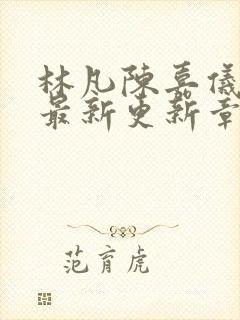 林凡陳嘉儀
最新更新章
范育虎